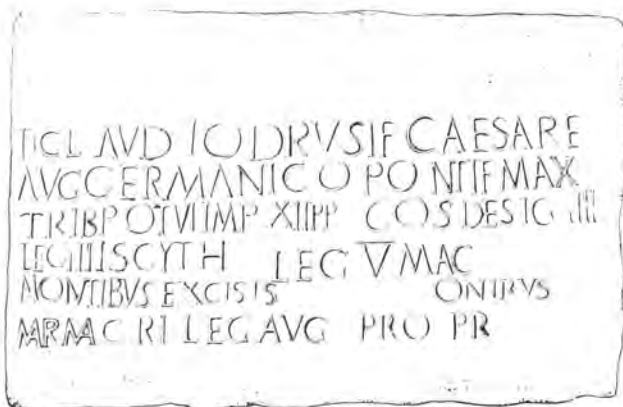 TI CL AVD IO DRVSI F CAESARE
AVG GERMANICO PONTIF MAX
TRIB POT VII IMP XII PP COS DESIG IIII
LEG IIII SCYTH LEG V MAC
MONTIBVS EXCISIS ONIBVS
CRI LEG AVG PRO PR